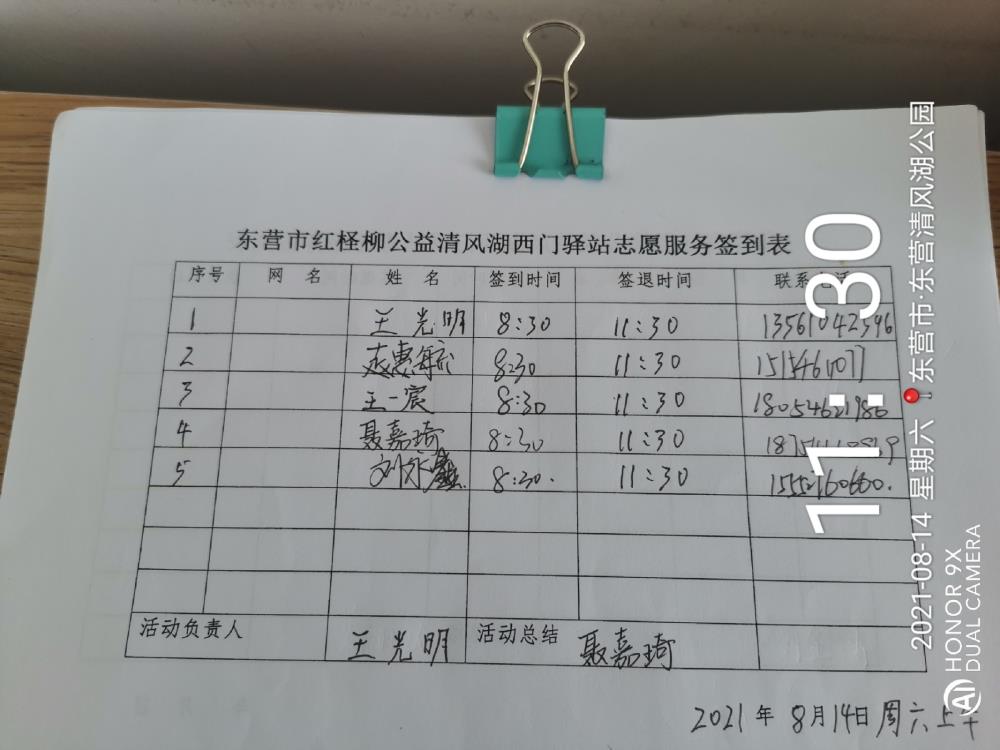 东营市红柽柳公益清风湖西门驿站志愿服务签到表
序号 网 名 姓 名 签到时间 签退时间 联系电话
1 王光明 8:30 11:30 13561042596
2 8:30 11:30
3 王一宸 8:30 11:30 18054621980
4 聂嘉琦 8:30 11:30
5 8:30. 11:30
活动负责人 王光明 活动总结 聂嘉琦
2021年8月14日周六上午
11:30
2021-08-14 星期六 东营市·东营清风湖公园
HONOR 9X
DUAL CAMERA
AI